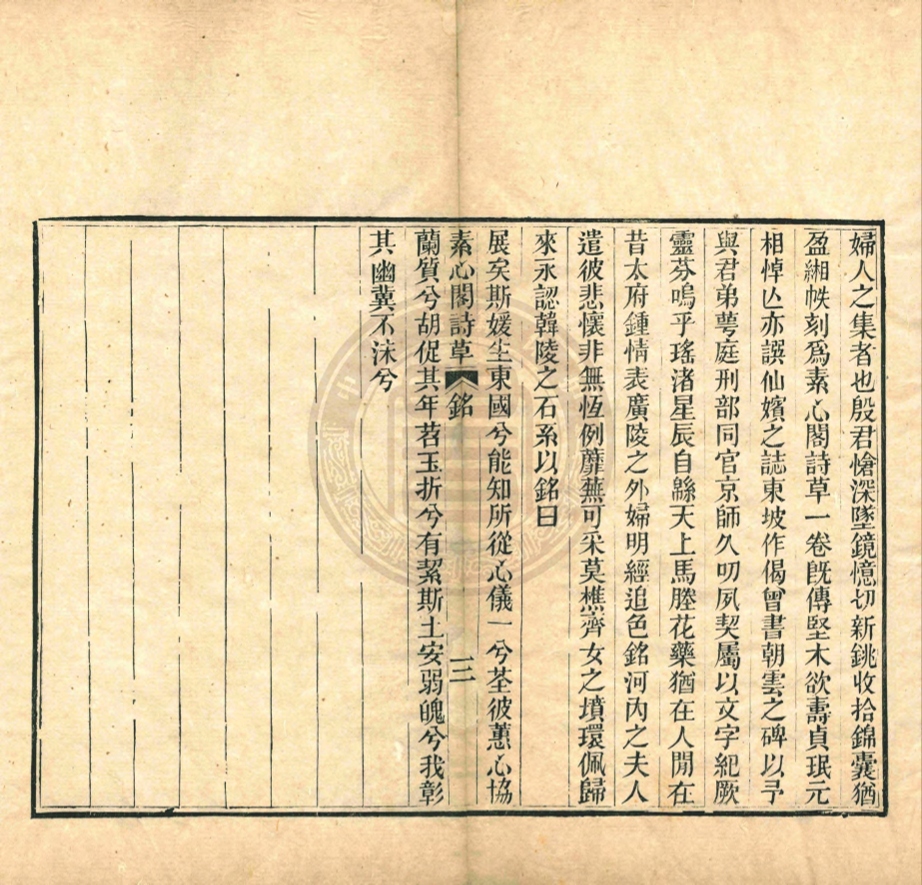 婦人之集者也殷君愴深墜鏡憶切新銚收拾錦囊猶
盈緗帙刻爲素心閣詩草一卷旣傳堅木欲壽貞珉元
相悼亾亦譔仙嬪之誌東坡作偈曾書朝雲之碑以予
與君弟萼庭刑部同官京師久叨夙契屬以文字紀厥
靈芬嗚乎瑤渚星辰自緜天上馬塍花藥猶在人閒在
昔太府鍾情表廣陵之外婦明經追色銘河內之夫人
遣彼悲懷非無恆例蘼蕪可采莫樵齊女之墳環佩歸
來永認韓陵之石系以銘曰
展矣斯媛生東國兮能知所從心儀一兮荃彼蕙心協
素心閣詩草 銘 三
蘭質兮胡促其年苕玉折兮有絜斯土安弱魄兮我彰
其幽冀不沬兮